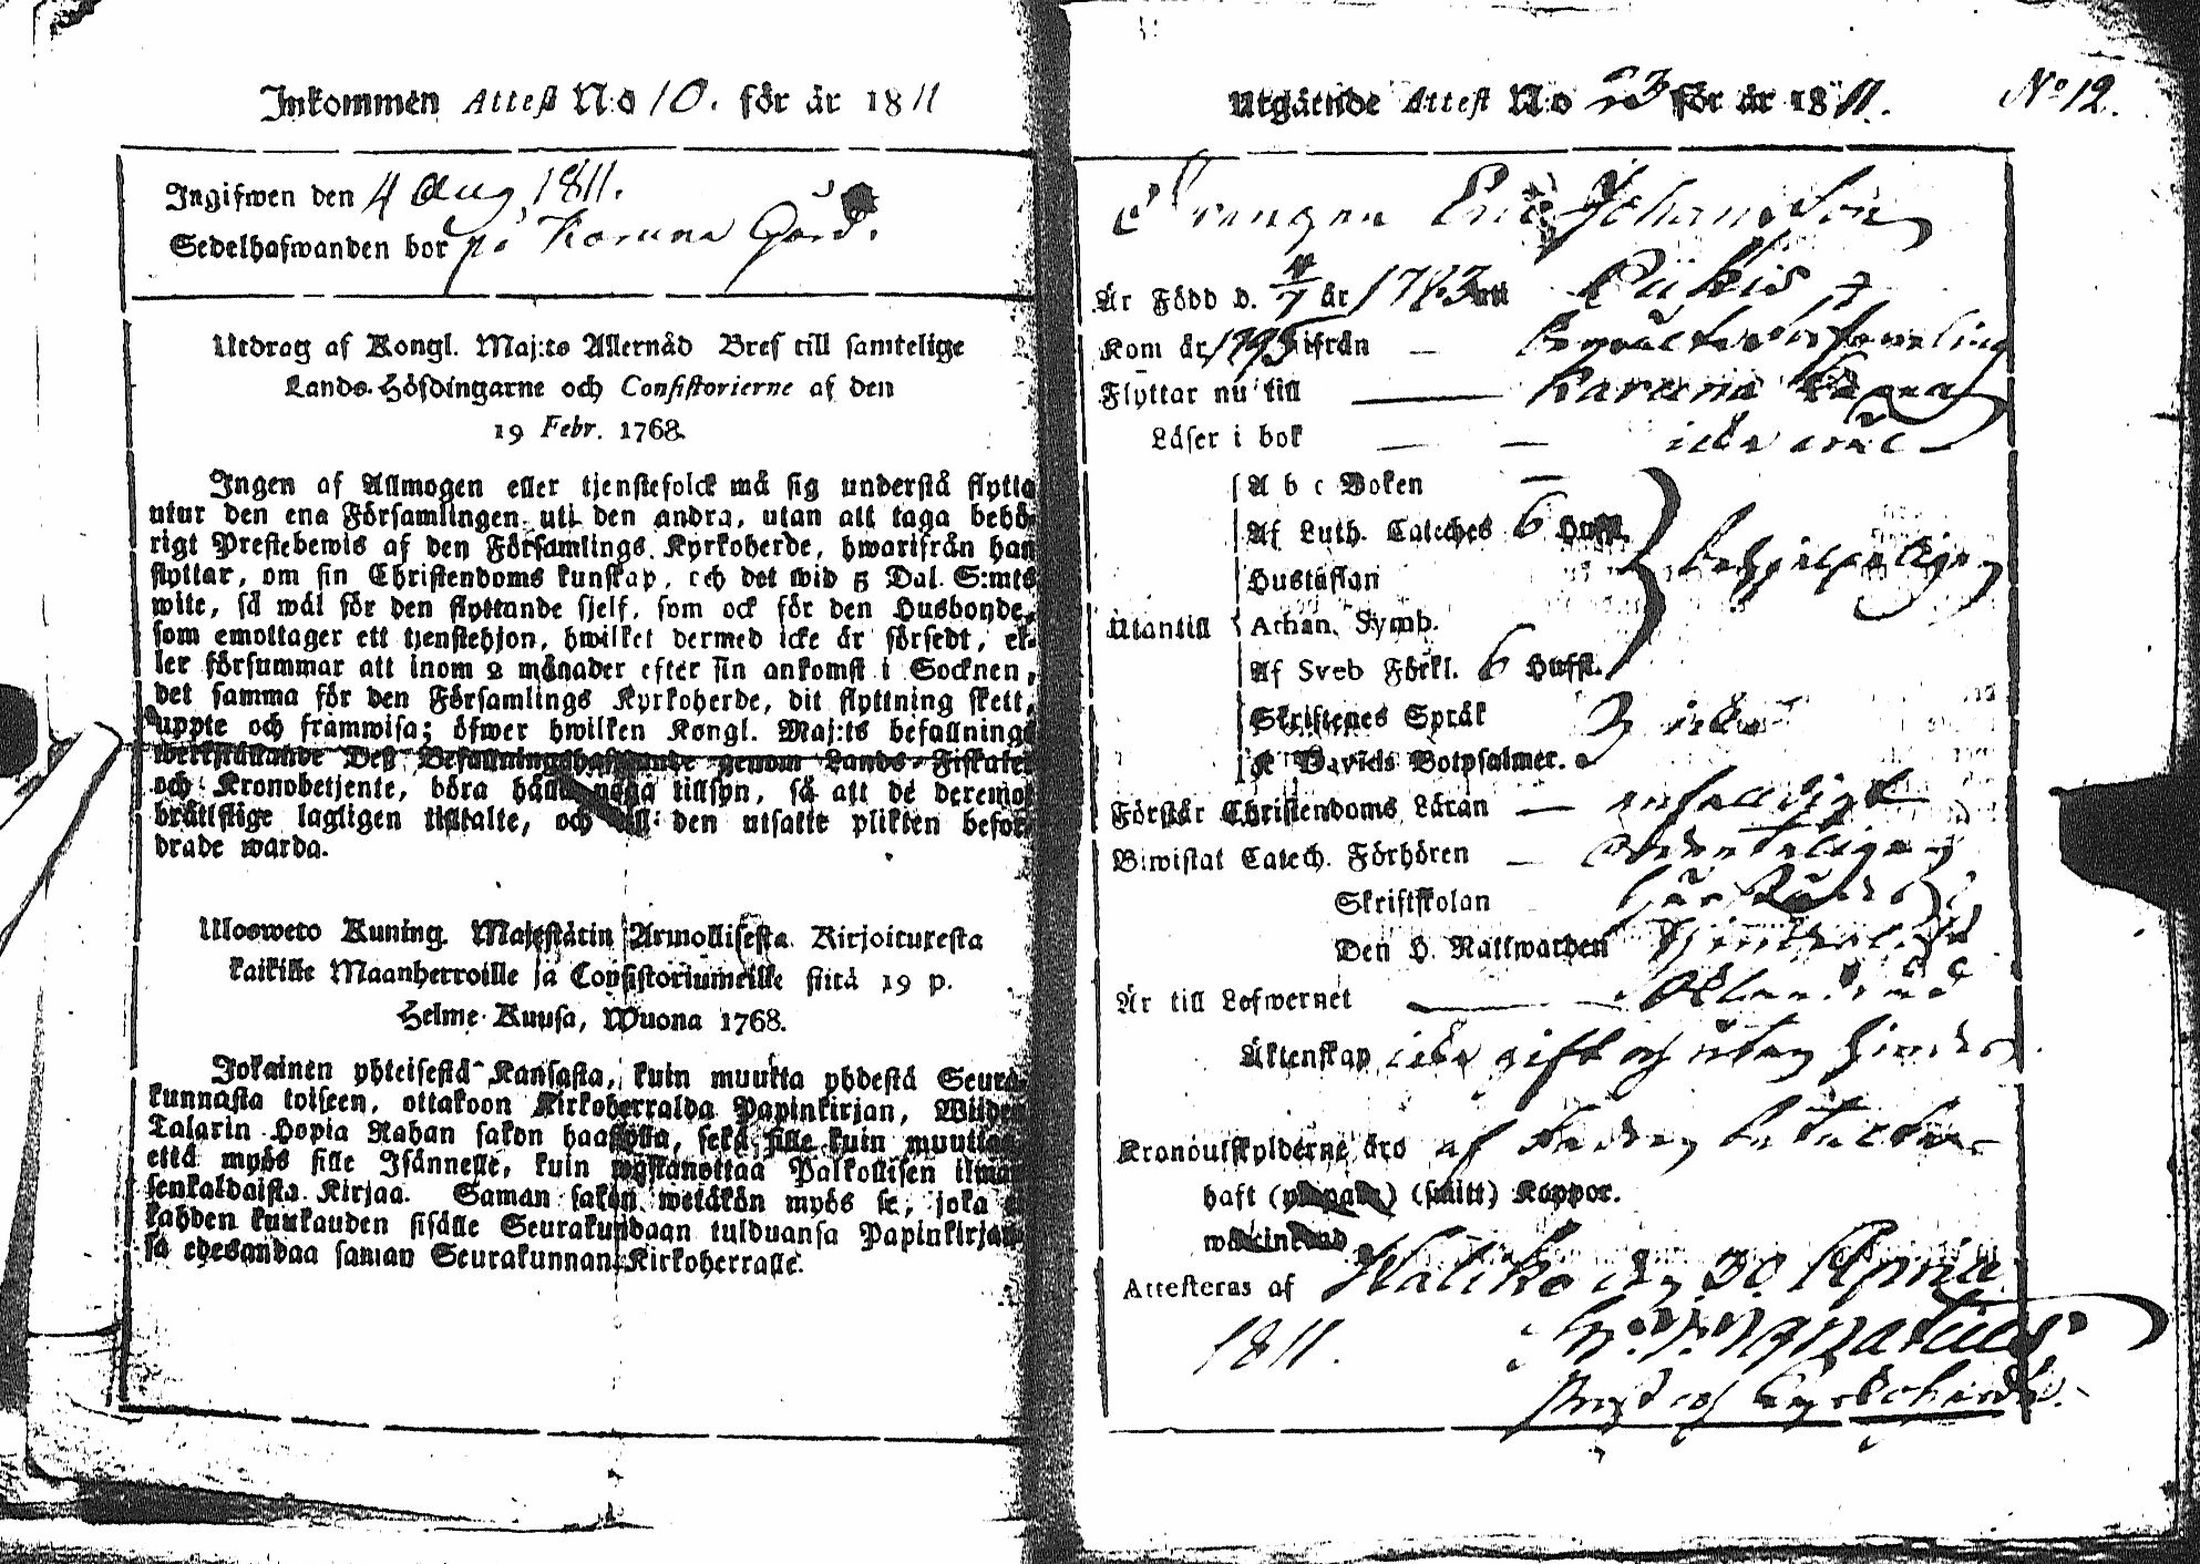 Inkommen Attest No 10. för år 1811
Ingifwen den 4 Aug. 1811.
Sedelhafwanden bor på Karuna Gård.
Utdrag af Kongl. Maj:ts Allernåd Bref till samtelige
Lands-Höfdingarne och Consistorierne af den
19 Febr. 1768.
Ingen af Allmogen eller tjenstefolck må sig understå flytta
utur den ena Församlingen uti den andra, utan att taga behö-
rigt Prestebewis af den Församlings Kyrkoherde, hwarifrån han
flyttar, om sin Christendoms kunskap, och det wid 5 Dal. S:mts
wite, så wäl för den flyttande sjelf, som ock för den Husbonde,
som emottager ett tjenstehjon, hwilket dermed icke är försedt, el-
ler försummar att inom 2 månader efter sin ankomst i Socknen,
det samma för den Församlings Kyrkoherde, dit flyttning skett,
uppte och framwisa; öfwer hwilken Kongl. Maj:ts befallnings
werkställande Dess Befallningshafwande genom Lands-Fiskaler
och Kronobetjente, böra hålla noga tillsyn, så att de deremot
bråttslige lagligen tilltalte, och till den utsatte plikten befor-
drade warda.
Ulosweto Kuning. Majestätin Armollisesta Kirjoituxesta
kaikille Maanherroille ja Consistoriumeille siitä 19 p.
Helme-Kuusa, Wuona 1768.
Jokainen yhteisestä Kansasta, kuin muutta yhdestä Seura-
kunnasta toiseen, ottakoon Kirkoherralda Papinkirjan, Wiiden
Talarin Hopia Rahan sakon haastolla, sekä sille kuin muuttaa
että myös sille Isännelle, kuin wastanottaa Palkollisen ilman
senkaldaista Kirjaa. Saman sakon wetäkön myös se, joka ei
kahden kuukauden sisälle Seurakundaan tulduansa Papinkirjaan-
sa edesandaa saman Seurakunnan Kirkoherralle.
Utgående Attest No 23 för år 1811. No 12.
Drengen Eric Johansson
Är Född d. 4/7 år 1783 uti Pukis
Kom år 1795 ifrån — församling
Flyttar nu till — Karuna
Läser i bok — — icke wäl
A b c Boken —
Af Luth. Cateches 6 Hufst.
Hustaflan behjelpeligen
Utantill Athan. Symb.
Af Sveb Förkl. 6 Hufst.
Skriftenes Språk
icke
K Davids Botpsalmer.
Förstår Christendoms Läran — enfaldigt
Biwistat Catech. Förhören — ordenteligen
Skriftskolan
Den H. Nattwarden
Är till Lefwernet —
Äktenskap icke gift och utan hinder.
Kronoutskylderne äro af betalte
haft (smitt) Koppor.
Attesteras af Halikko den 30 April
1811. Ignatius
Prost och Kyrckoherde.